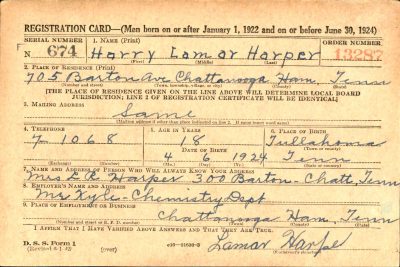 REGISTRATION CARD—(Men born on or after January 1, 1922 and on or before June 30, 1924)
SERIAL NUMBER 1. NAME (Print) ORDER NUMBER
N 674 Harry Lamar Harper 13287
(First) (Middle) (Last)
2. PLACE OF RESIDENCE (Print)
705 Barton Ave Chattanooga Ham. Tenn
(Number and street) (Town, township, village, or city) (County) (State)
[THE PLACE OF RESIDENCE GIVEN ON THE LINE ABOVE WILL DETERMINE LOCAL BOARD
JURISDICTION; LINE 2 OF REGISTRATION CERTIFICATE WILL BE IDENTICAL]
3. MAILING ADDRESS
Same
[Mailing address if other than place indicated on line 2. If same insert word same]
4. TELEPHONE 5. AGE IN YEARS 6. PLACE OF BIRTH
7 1068 18 Tullahoma
DATE OF BIRTH (Town or county)
4 6 1924 Tenn
(Mo.) (Day) (Yr.) (State or country)
7. NAME AND ADDRESS OF PERSON WHO WILL ALWAYS KNOW YOUR ADDRESS
Mrs E. R. Harper 300 Barton - Chatt, Tenn
8. EMPLOYER'S NAME AND ADDRESS
Mr Kyle - Chemistry Dept
9. PLACE OF EMPLOYMENT OR BUSINESS
Chattanooga Ham. Tenn
(Number and street or R. F. D. number) (Town) (County) (State)
I AFFIRM THAT I HAVE VERIFIED ABOVE ANSWERS AND THAT THEY ARE TRUE.
D. S. S. Form 1 (over) Lamar Harpe